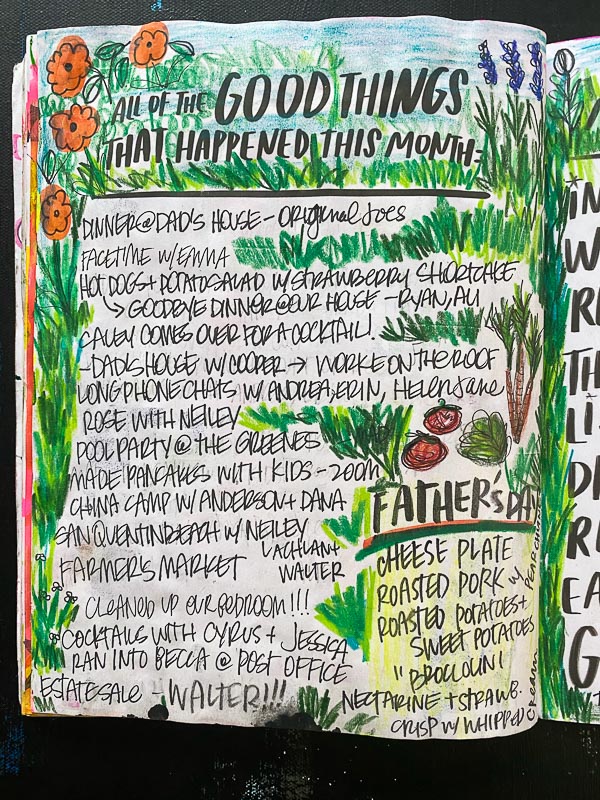 ALL OF THE GOOD THINGS
THAT HAPPENED THIS MONTH:
DINNER@DAD'S HOUSE - Original Joes
FACETIME W/ EMMA
HOT DOGS + POTATO SALAD W/ STRAWBERRY SHORTCAKE
↳ GOODBYE DINNER@OUR HOUSE - RYAN, ALI
CALEY COMES OVER FOR A COCKTAIL!
- DAD'S HOUSE W/ COOPER → WORKE ON THE ROOF
LONG PHONE CHATS W/ ANDREA, ERIN, HELEN Jane
ROSE WITH NEILEY
POOL PARTY @ THE GREENES
MADE PANCAKES WITH KIDS - ZOOM
CHINA CAMP W/ ANDERSON + DANA
SAN QUENTIN BEACH W/ NEILEY
LACHLAN +
WALTER
FARMER'S MARKET
CLEANED UP OUR BEDROOM!!!
COCKTAILS WITH CYRUS + JESSICA
RAN INTO BECCA @ POST OFFICE
ESTATE SALE - WALTER!!!
FATHER'S DAY
CHEESE PLATE
ROASTED PORK W/
ROASTED POTATOES +
SWEET POTATOES
"BROCLOUNI
NECTARINE + STRAWB.
CRISP W/ WHIPPED
CREAM
IN
W
R
TH
LI
D
R
EA
G